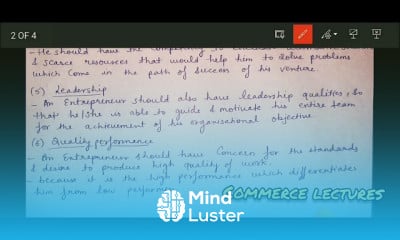 2 OF 4
- He should have the
& scarce resources that would help him to solve problems
which come in the path of success of his venture.
(5) Leadership
- An Entrepreneur should also have leadership qualities, so
that he/she is able to guide & motivate his entire team
for the achievement of his organisational objective
(6) Quality performance
- An Entrepreneur should have concern for the standards
& desire to produce high quality of work.
- because it is the high performance which differentiates
him from low
COMMERCE LECTURES
Mind
Luster